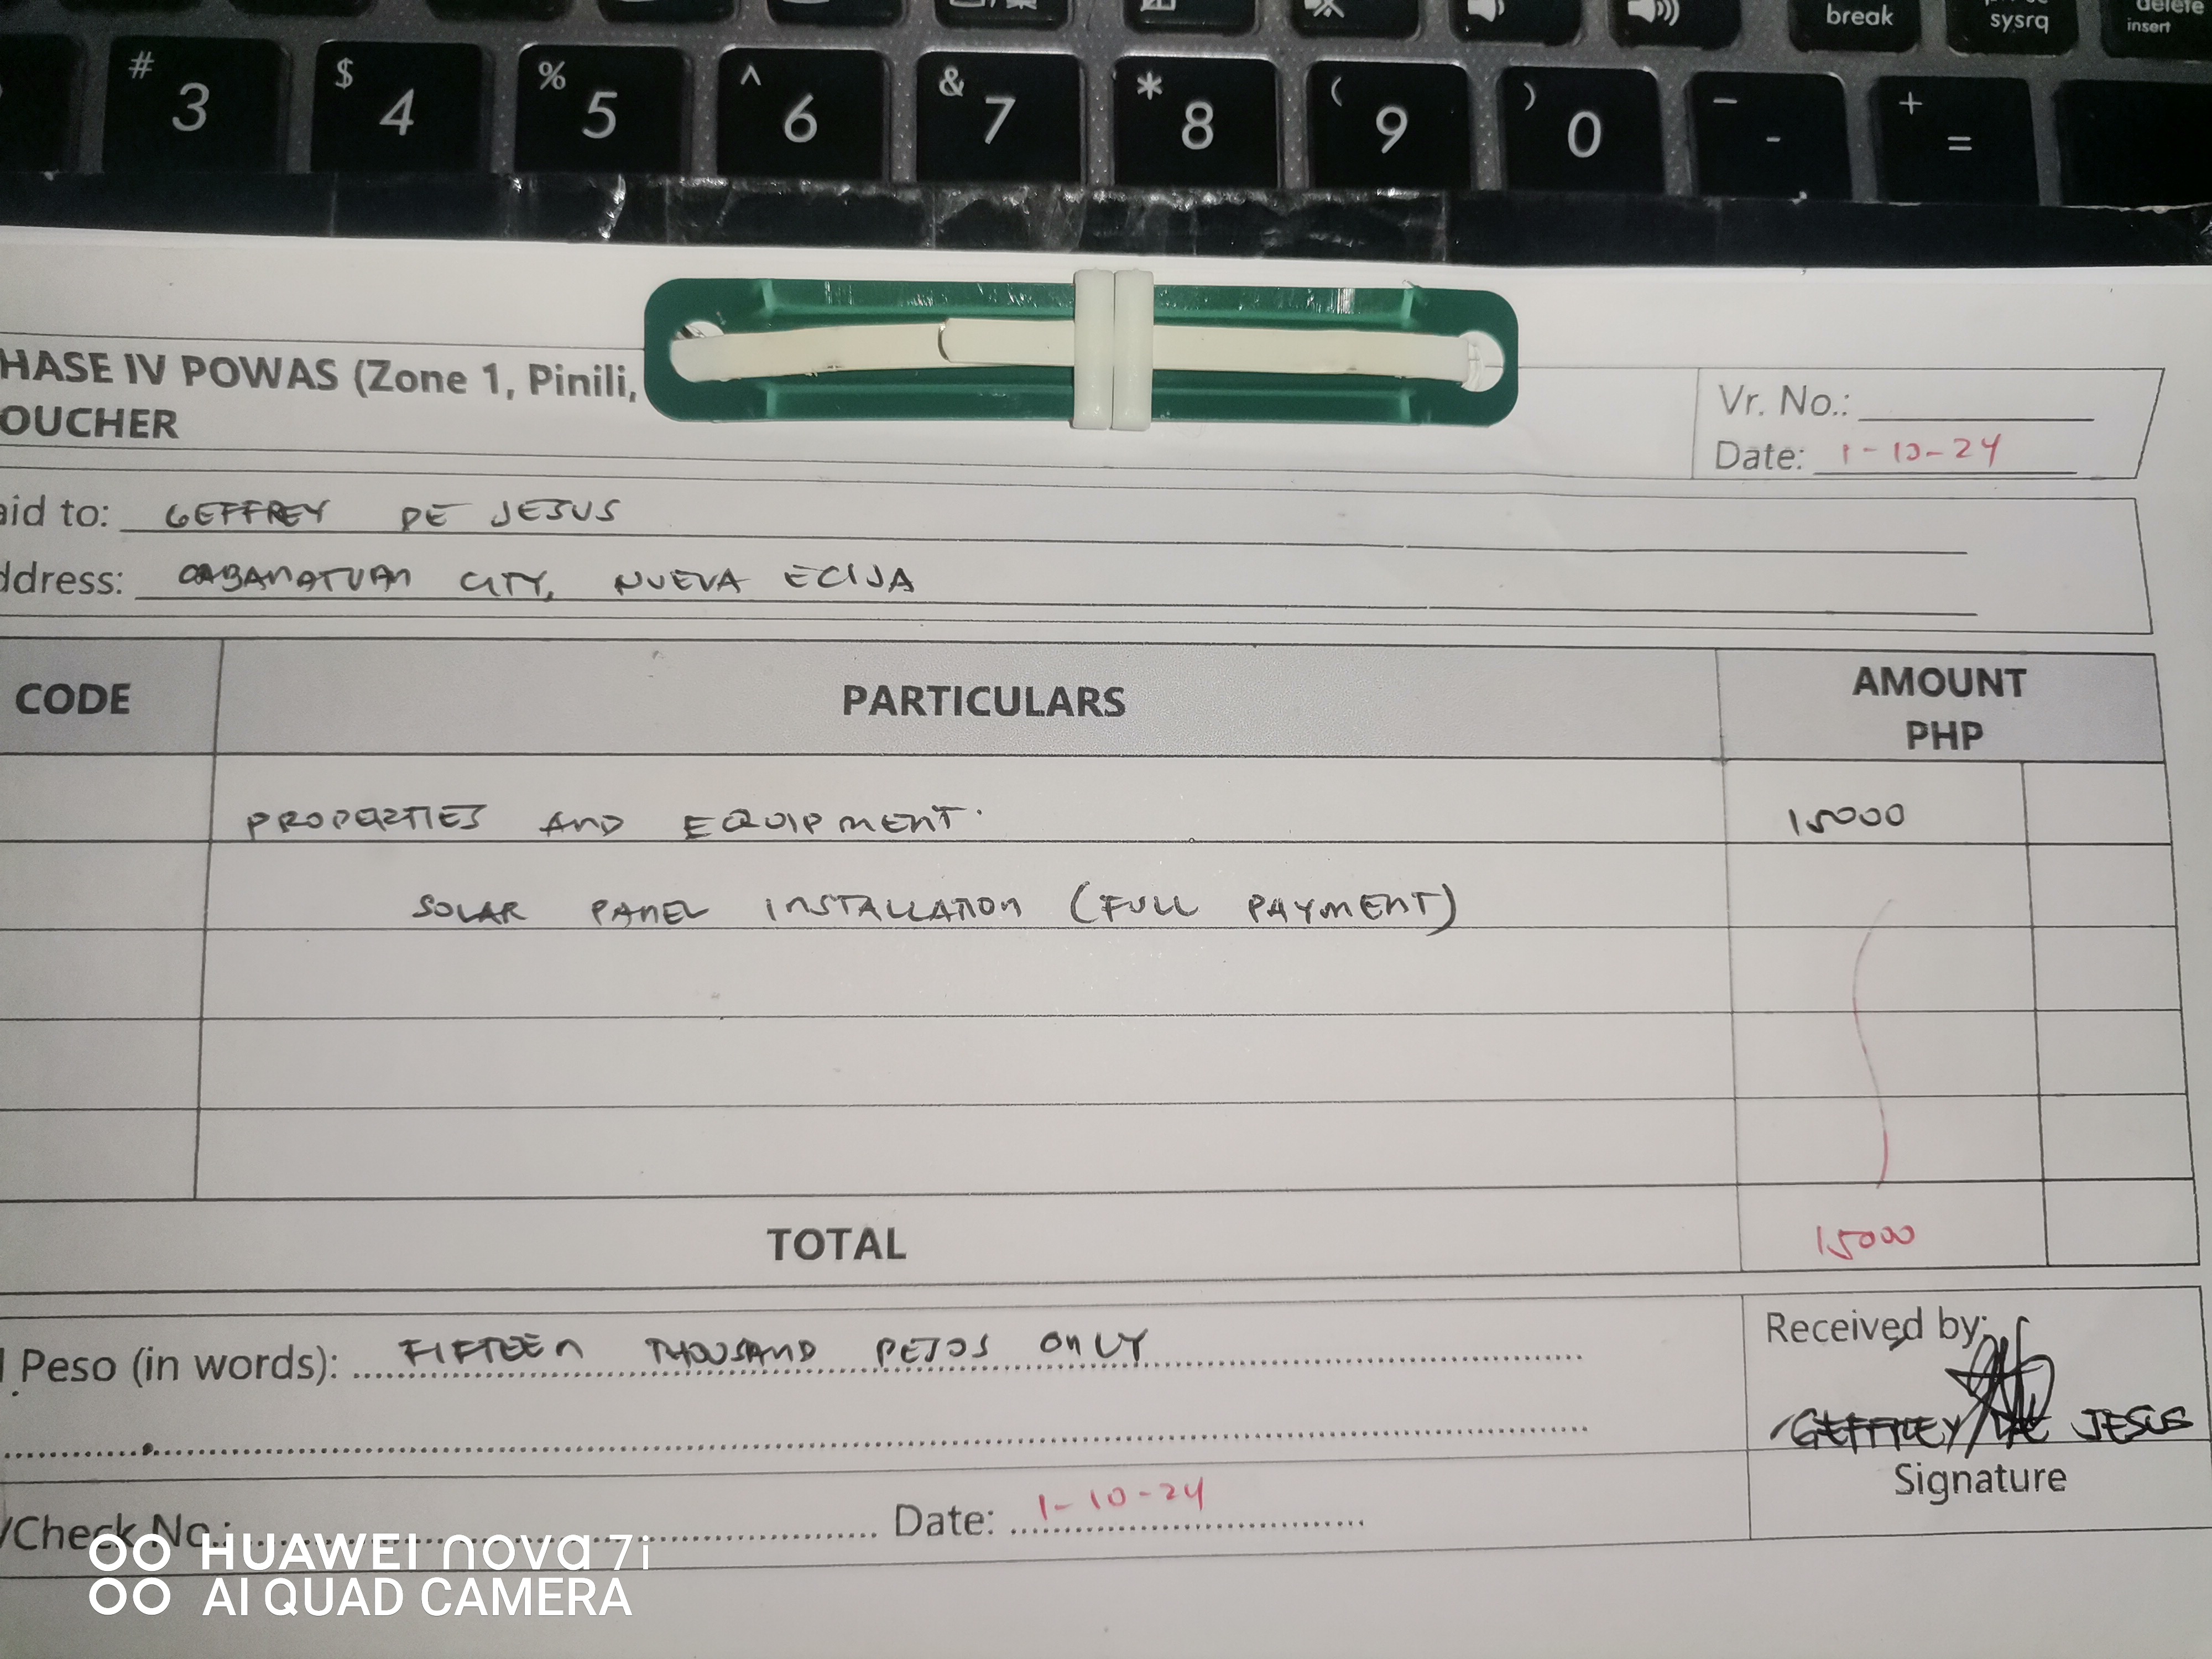 break sysrq delete insert
# 3 $ 4 % 5 ^ 6 & 7 * 8 ( 9 ) 0 _ - + =
HASE IV POWAS (Zone 1, Pinili,
OUCHER
Vr. No.:
Date: 1-10-24
aid to: GEFFREY DE JESUS
ddress: CABANATUAN CITY, NUEVA ECIJA
CODE PARTICULARS AMOUNT PHP
PROPERTIES AND EQUIPMENT. 15000
SOLAR PANEL INSTALLATION (FULL PAYMENT)
TOTAL 15000
Peso (in words): FIFTEEN THOUSAND PESOS ONLY
Received by:
GEFFREY DE JESUS
Signature
/Check No.: Date: 1-10-24
HUAWEI nova 7i
AI QUAD CAMERA